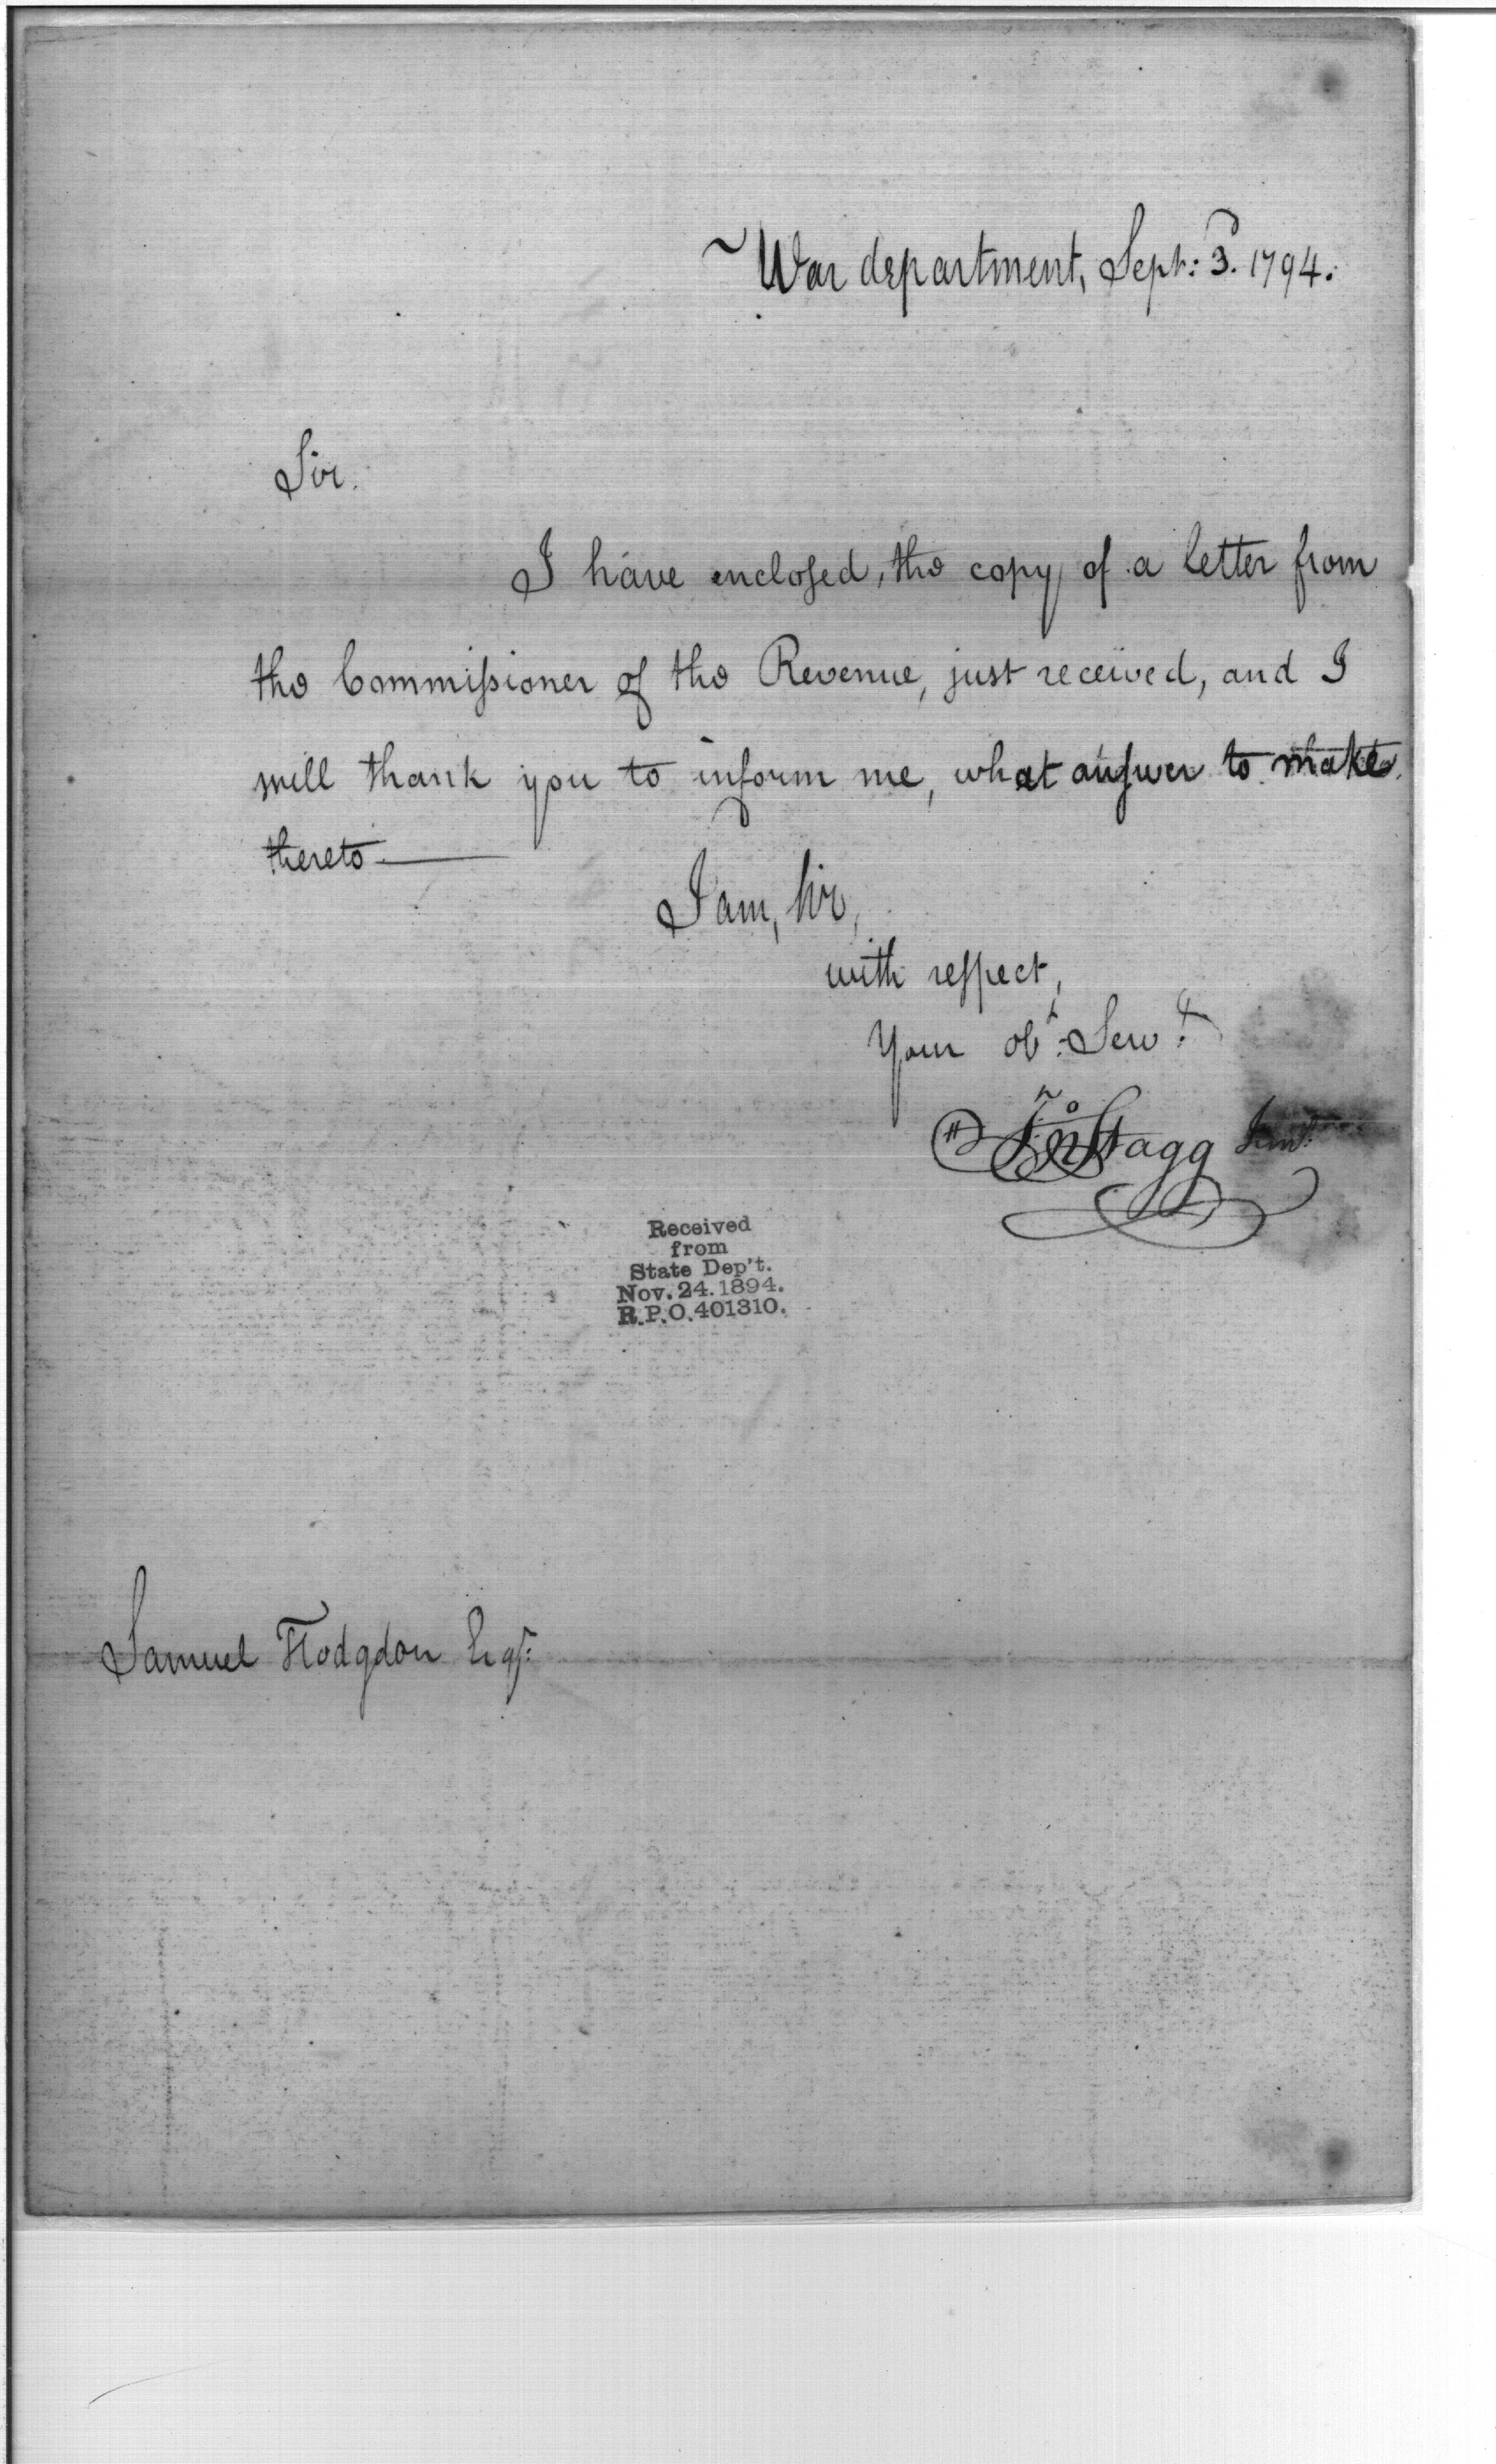 War department, Sept: 3d. 1794.
Sir.
I have enclosed, the copy of a letter from
the Commissioner of the Revenue, just received, and I
will thank you to inform me, what answer to make
thereto
I am, Sir,
with respect,
Your obt: Servt.
Jno Stagg Junr.
Received
from
State Dep't.
Nov. 24. 1894.
R.P.O. 401310.
Samuel Hodgdon Esqr: